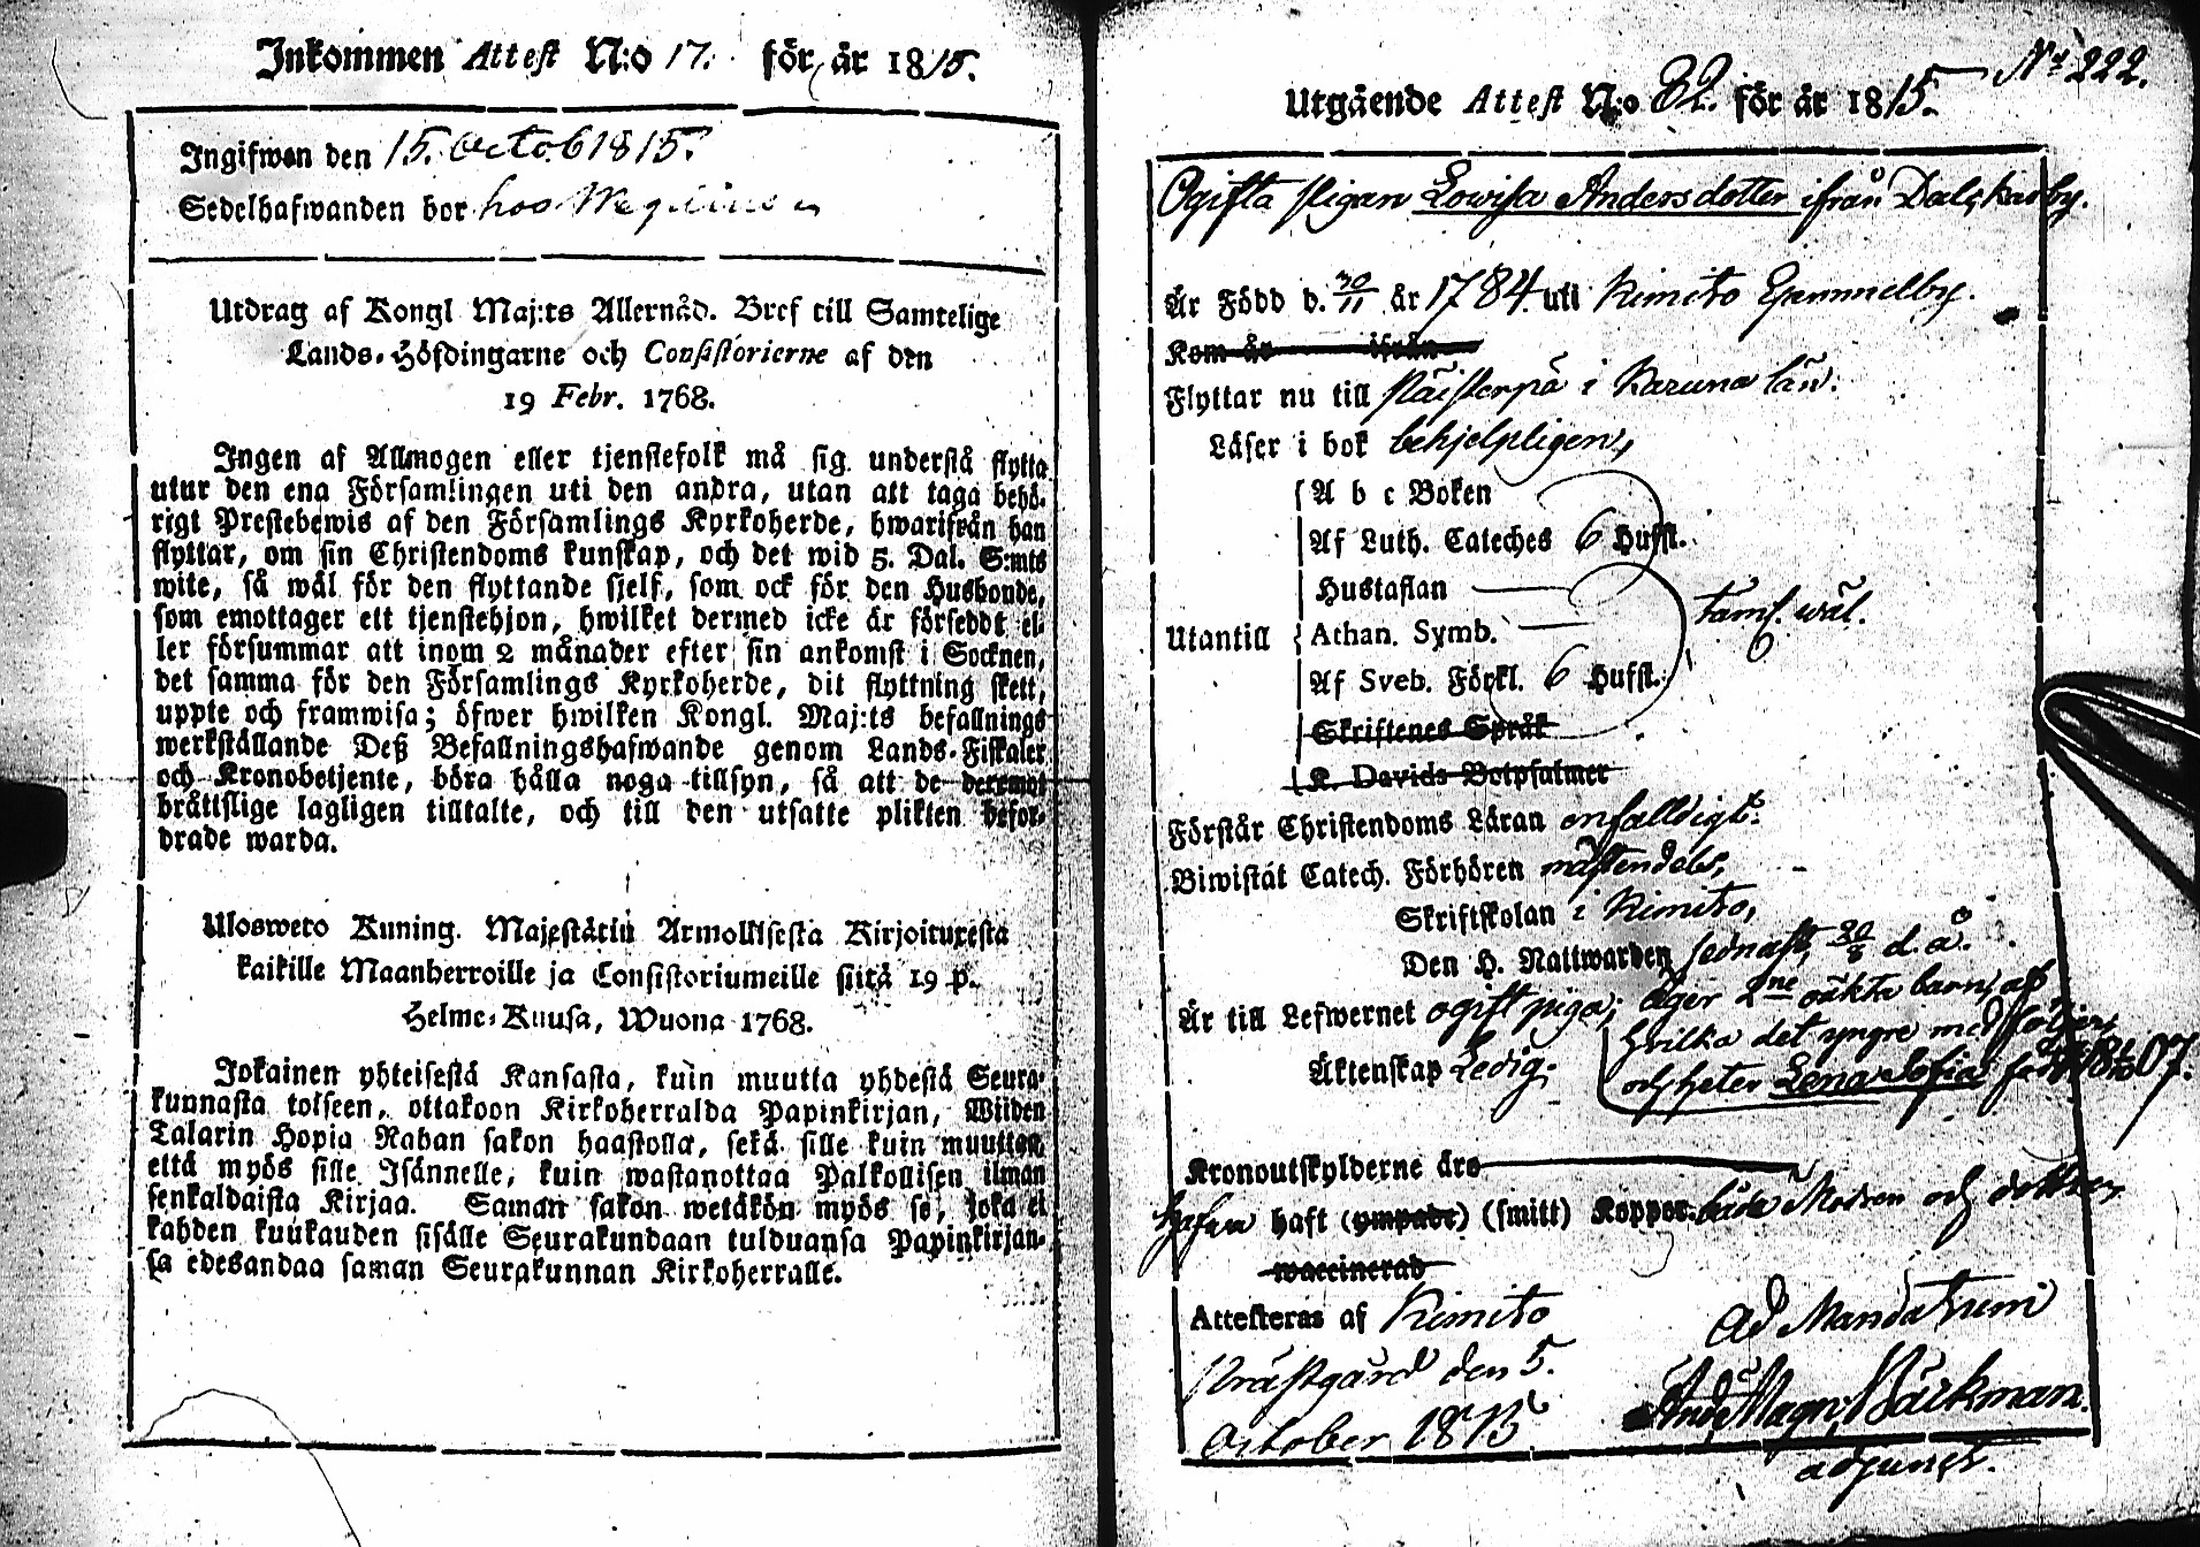 Inkommen Attest N:o 17. för år 1815.
Ingifwen den 15. Octob 1815.
Sedelhafwanden bor hos
Utdrag af Kongl Maj:ts Allernåd. Bref till Samtelige
Lands-Höfdingarne och Consistorierne af den
19 Febr. 1768.
Ingen af Allmogen eller tjenstefolk må sig understå flytta
utur den ena Församlingen uti den andra, utan att taga behö-
rigt Prestebewis af den Församlings Kyrkoherde, hwarifrån han
flyttar, om sin Christendoms kunskap, och det wid 5. Dal. S:mts
wite, så wäl för den flyttande sjelf, som ock för den Husbonde,
som emottager ett tjenstehjon, hwilket dermed icke är förseddt el-
ler försummar att inom 2 månader efter sin ankomst i Socknen,
det samma för den Församlings Kyrkoherde, dit flyttning skett,
uppte och framwisa; öfwer hwilken Kongl. Maj:ts befallnings
werkställande Deß Befallningshafwande genom Lands-Fiskaler
och Kronobetjente, böra hålla noga tillsyn, så att de deremot
bråttslige lagligen tilltalte, och till den utsatte plikten befor-
drade warda.
Ulosweto Kuning. Majestätin Armollisesta Kirjoituxesta
kaikille Maanherroille ja Consistoriumeille siitä 19 p.
Helme-Kuusa, Wuona 1768.
Jokainen yhteisestä Kansasta, kuin muutta yhdestä Seura-
kunnasta toiseen, ottakoon Kirkoherralda Papinkirjan, Wiiden
Talarin Hopia Rahan sakon haastolla, sekä sille kuin muuttaa,
että myös sille Isännelle, kuin wastanottaa Palkollisen ilman
senkaldaista Kirjaa. Saman sakon wetäkön myös se, joka ei
kahden kuukauden sisälle Seurakundaan tulduansa Papinkirjan-
sa edesandaa saman Seurakunnan Kirkoherralle.
Utgående Attest N:o 82. för år 1815. No 222.
Ogifta Pigan Lowisa Andersdotter ifrån Dalskarby.
Är Född d. 30/11 år 1784. uti Kimito Gammelby.
Kom år ifrån
Flyttar nu till Päisterpä i Karuna län.
Läser i bok behjelpligen,
A b c Boken
Af Luth. Cateches 6 Hufst.
Hustaflan
Utantill Athan. Symb. täml. wäl.
Af Sveb. Förkl. 6 Hufst.
Skriftenes Språk
K. Davids Botpsalmer
Förstår Christendoms Läran enfalldigt.
Biwistat Catech. Förhören mästendels,
Skriftskolan i Kimito,
Den H. Nattwarden sednast 30/8 d. å.
Är till Lefwernet ogift piga; äger 2ne oäkta barn, af
hvilka det yngre medföljer
Äktenskap Ledig; och heter Lena Sofia född 1807.
Kronoutskylderne äro
Hafwa haft (ympade) (smitt) Koppor. både Modren och dottren
waccinerad
Attesteras af Kimito Ad Mandatum
Prästgård den 5.
October 1815 And. Magn. Bärkman.
adjunct.